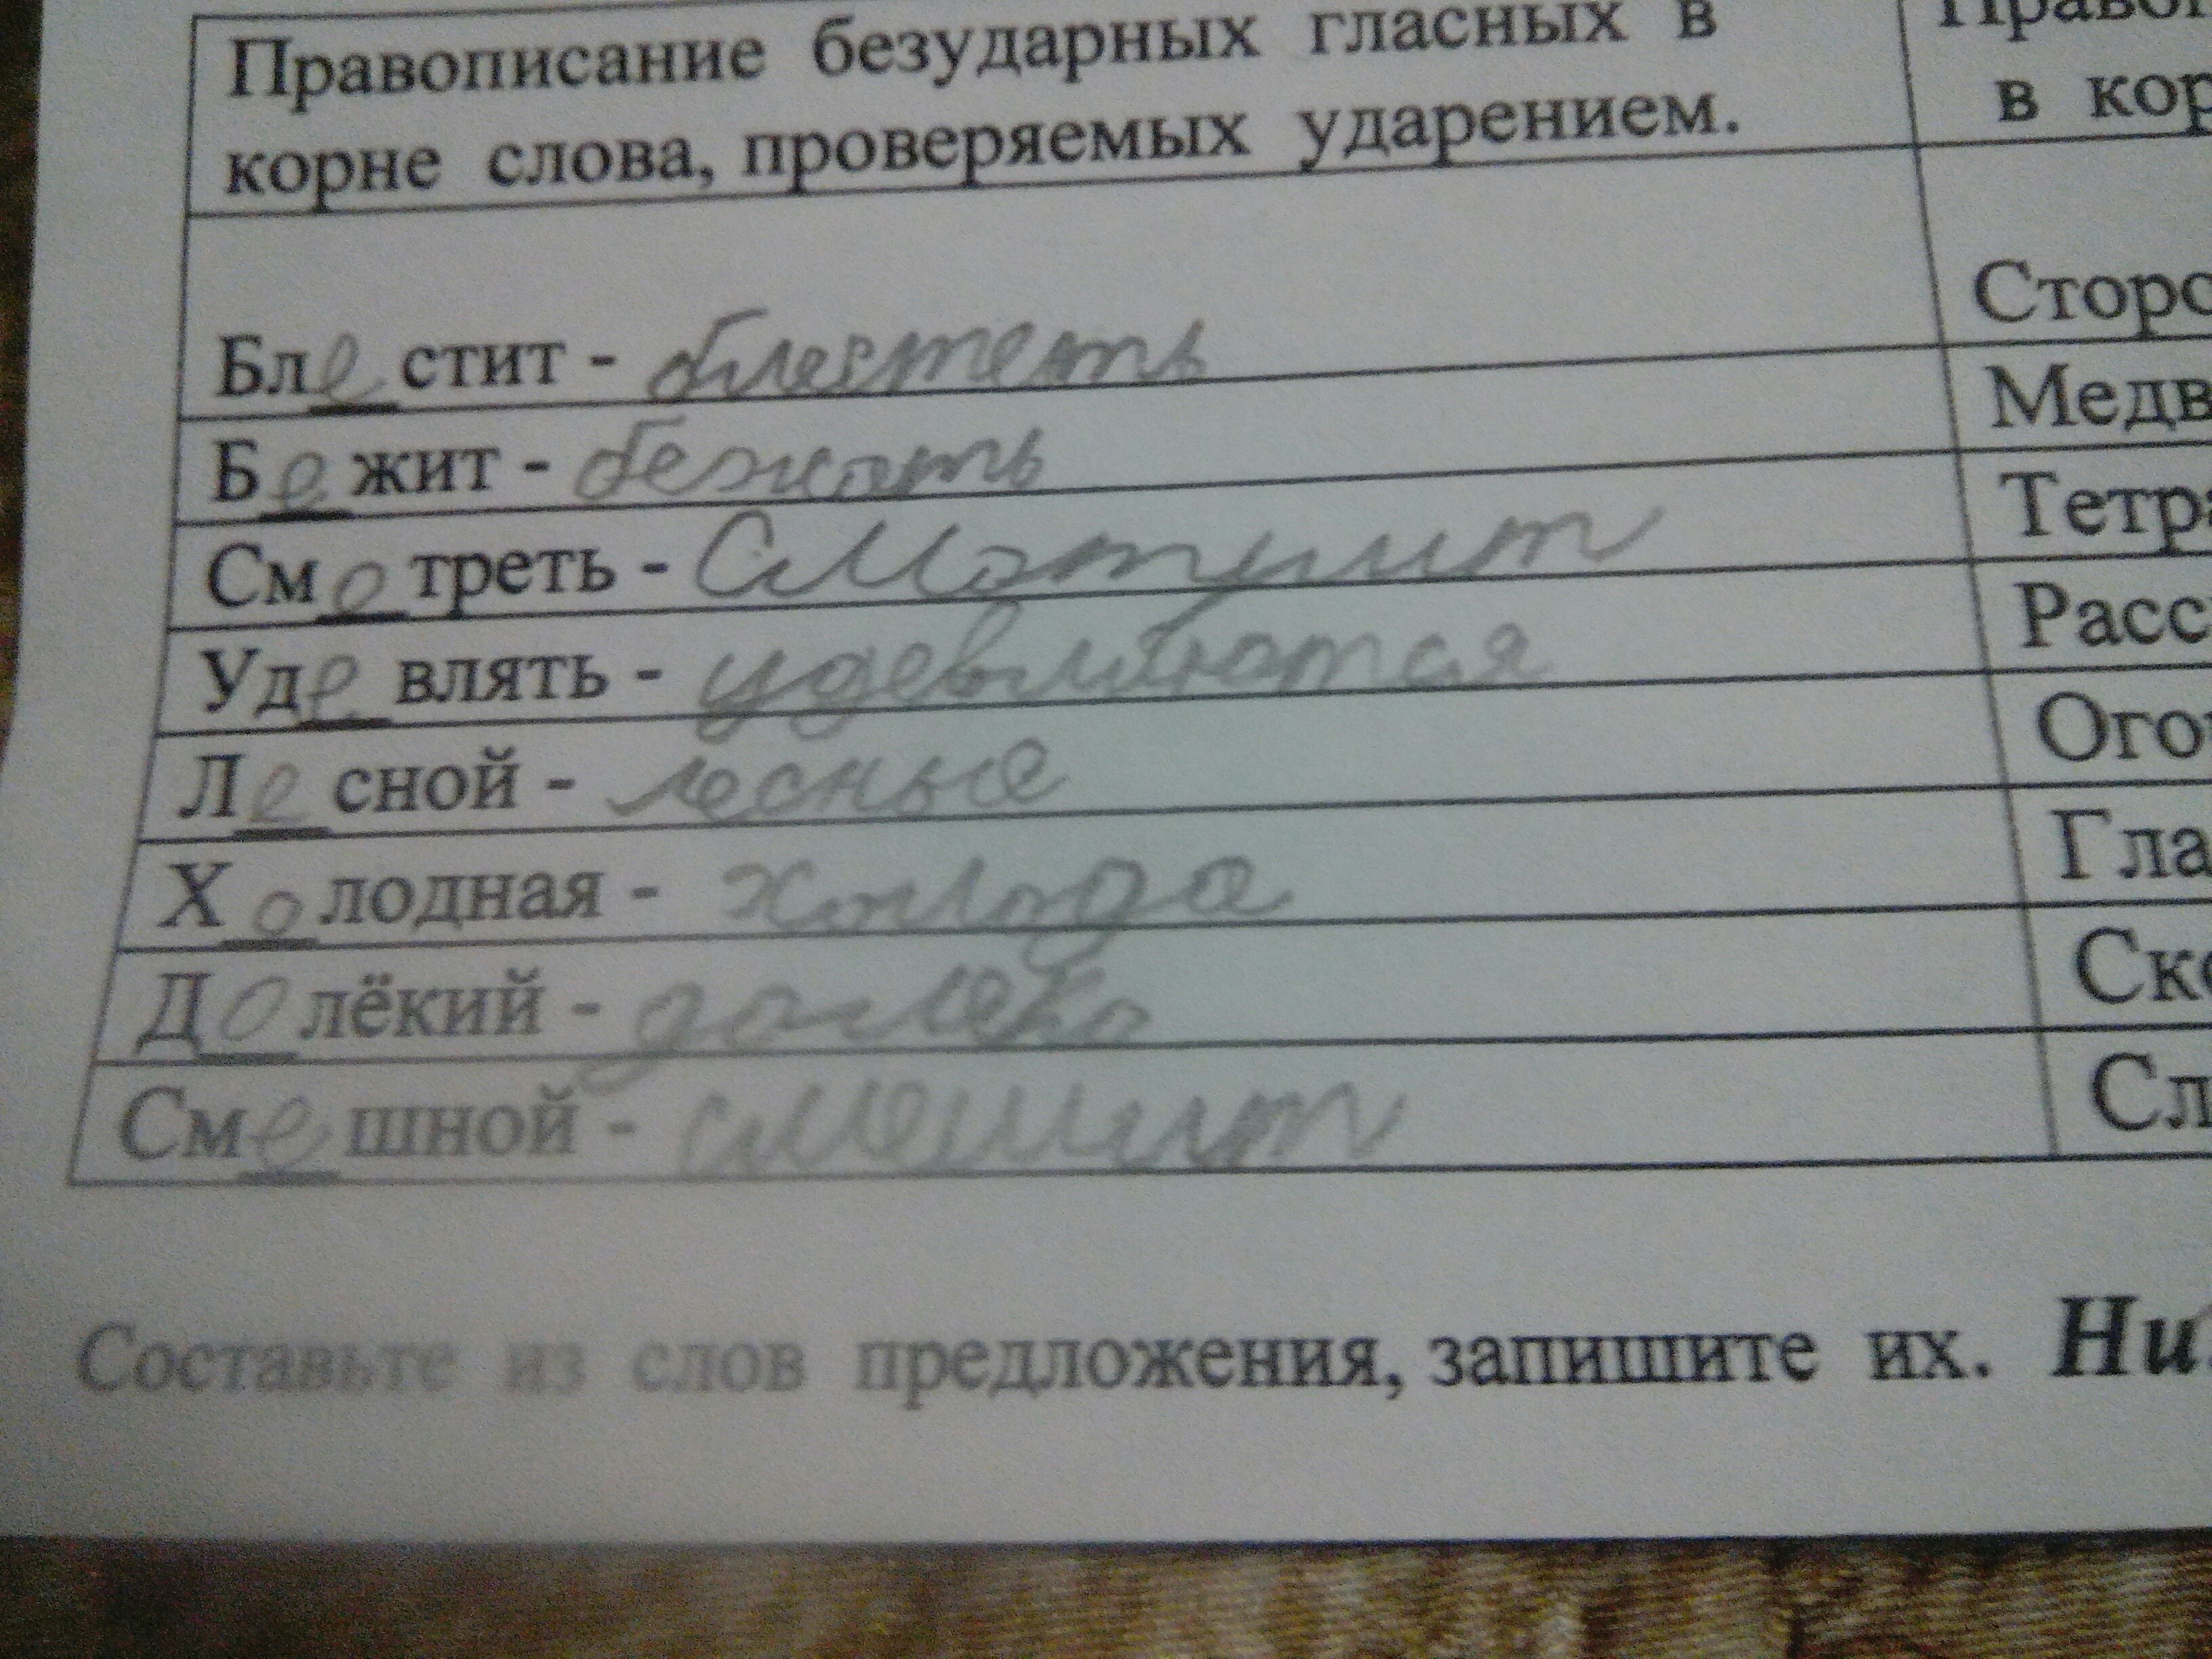 Правописание безударных гласных в
корне слова, проверяемых ударением.
в кор
Блестит - блестеть
Сторо
Бежит - бежать
Медв
Смотреть - Смотрит
Тетра
Удевлять - удевляются
Расс
Лесной - лесные
Ого
Холодная - холода
Гла
Долёкий - долеко
Ско
Смешной - смешит
Сл
Составьте из слов предложения, запишите их. Ни